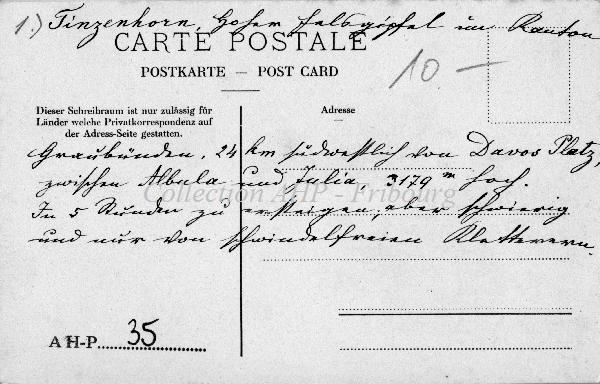 1.) Tinzenhorn, hoher Felsgipfel im Kanton
CARTE POSTALE
10 —
POSTKARTE — POST CARD
Dieser Schreibraum ist nur zulässig für
Länder welche Privatkorrespondenz auf
der Adress-Seite gestatten.
Adresse
Graubünden, 24 km südwestlich von Davos Platz,
zwischen Albula und Julia 3179 m hoch.
Collection AHP - Fribourg
In 5 Stunden zu ersteigen, aber schwierig
und nur von schwindelfreien Kletterern.
A H-P. 35